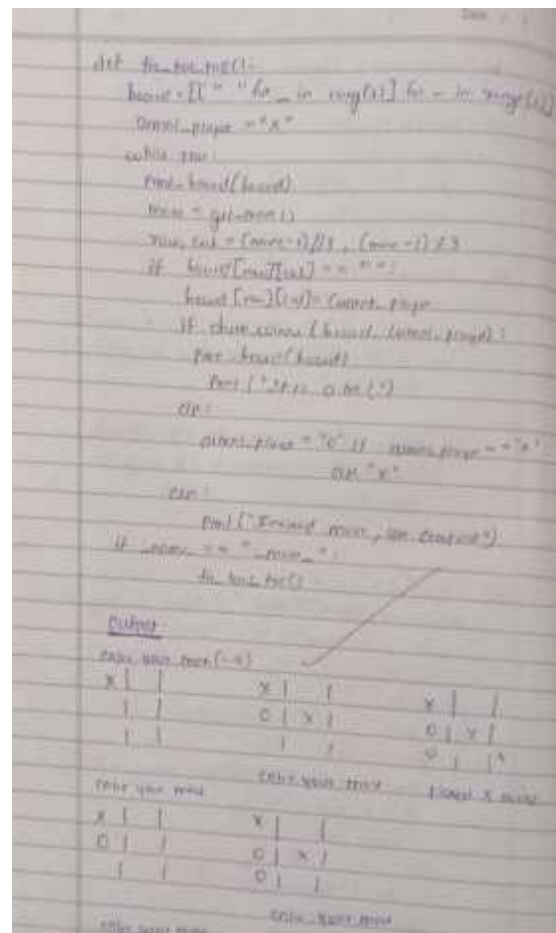 def tic_tac_toe():
board = [[" " for _ in range(3)] for _ in range(3)]
current_player = "X"
while true:
print_board(board)
move = get_move()
row, col = (move-1)//3, (move-1)%3
if board[row][col] == " ":
board[row][col] = current_player
if check_winner(board, current_player):
print_board(board)
print("
else:
current_player = "O" if current_player == "X"
else "X"
else:
print("Invalid move,
if _name_ == "_main_":
tic_tac_toe()
Output
enter your move (1-9)
X | | X | | X | |
| | O | X | O | X |
| | | | O | | X
enter your move enter your move player X wins
X | | X | |
O | | O | X |
| | O | |
enter your move enter your move